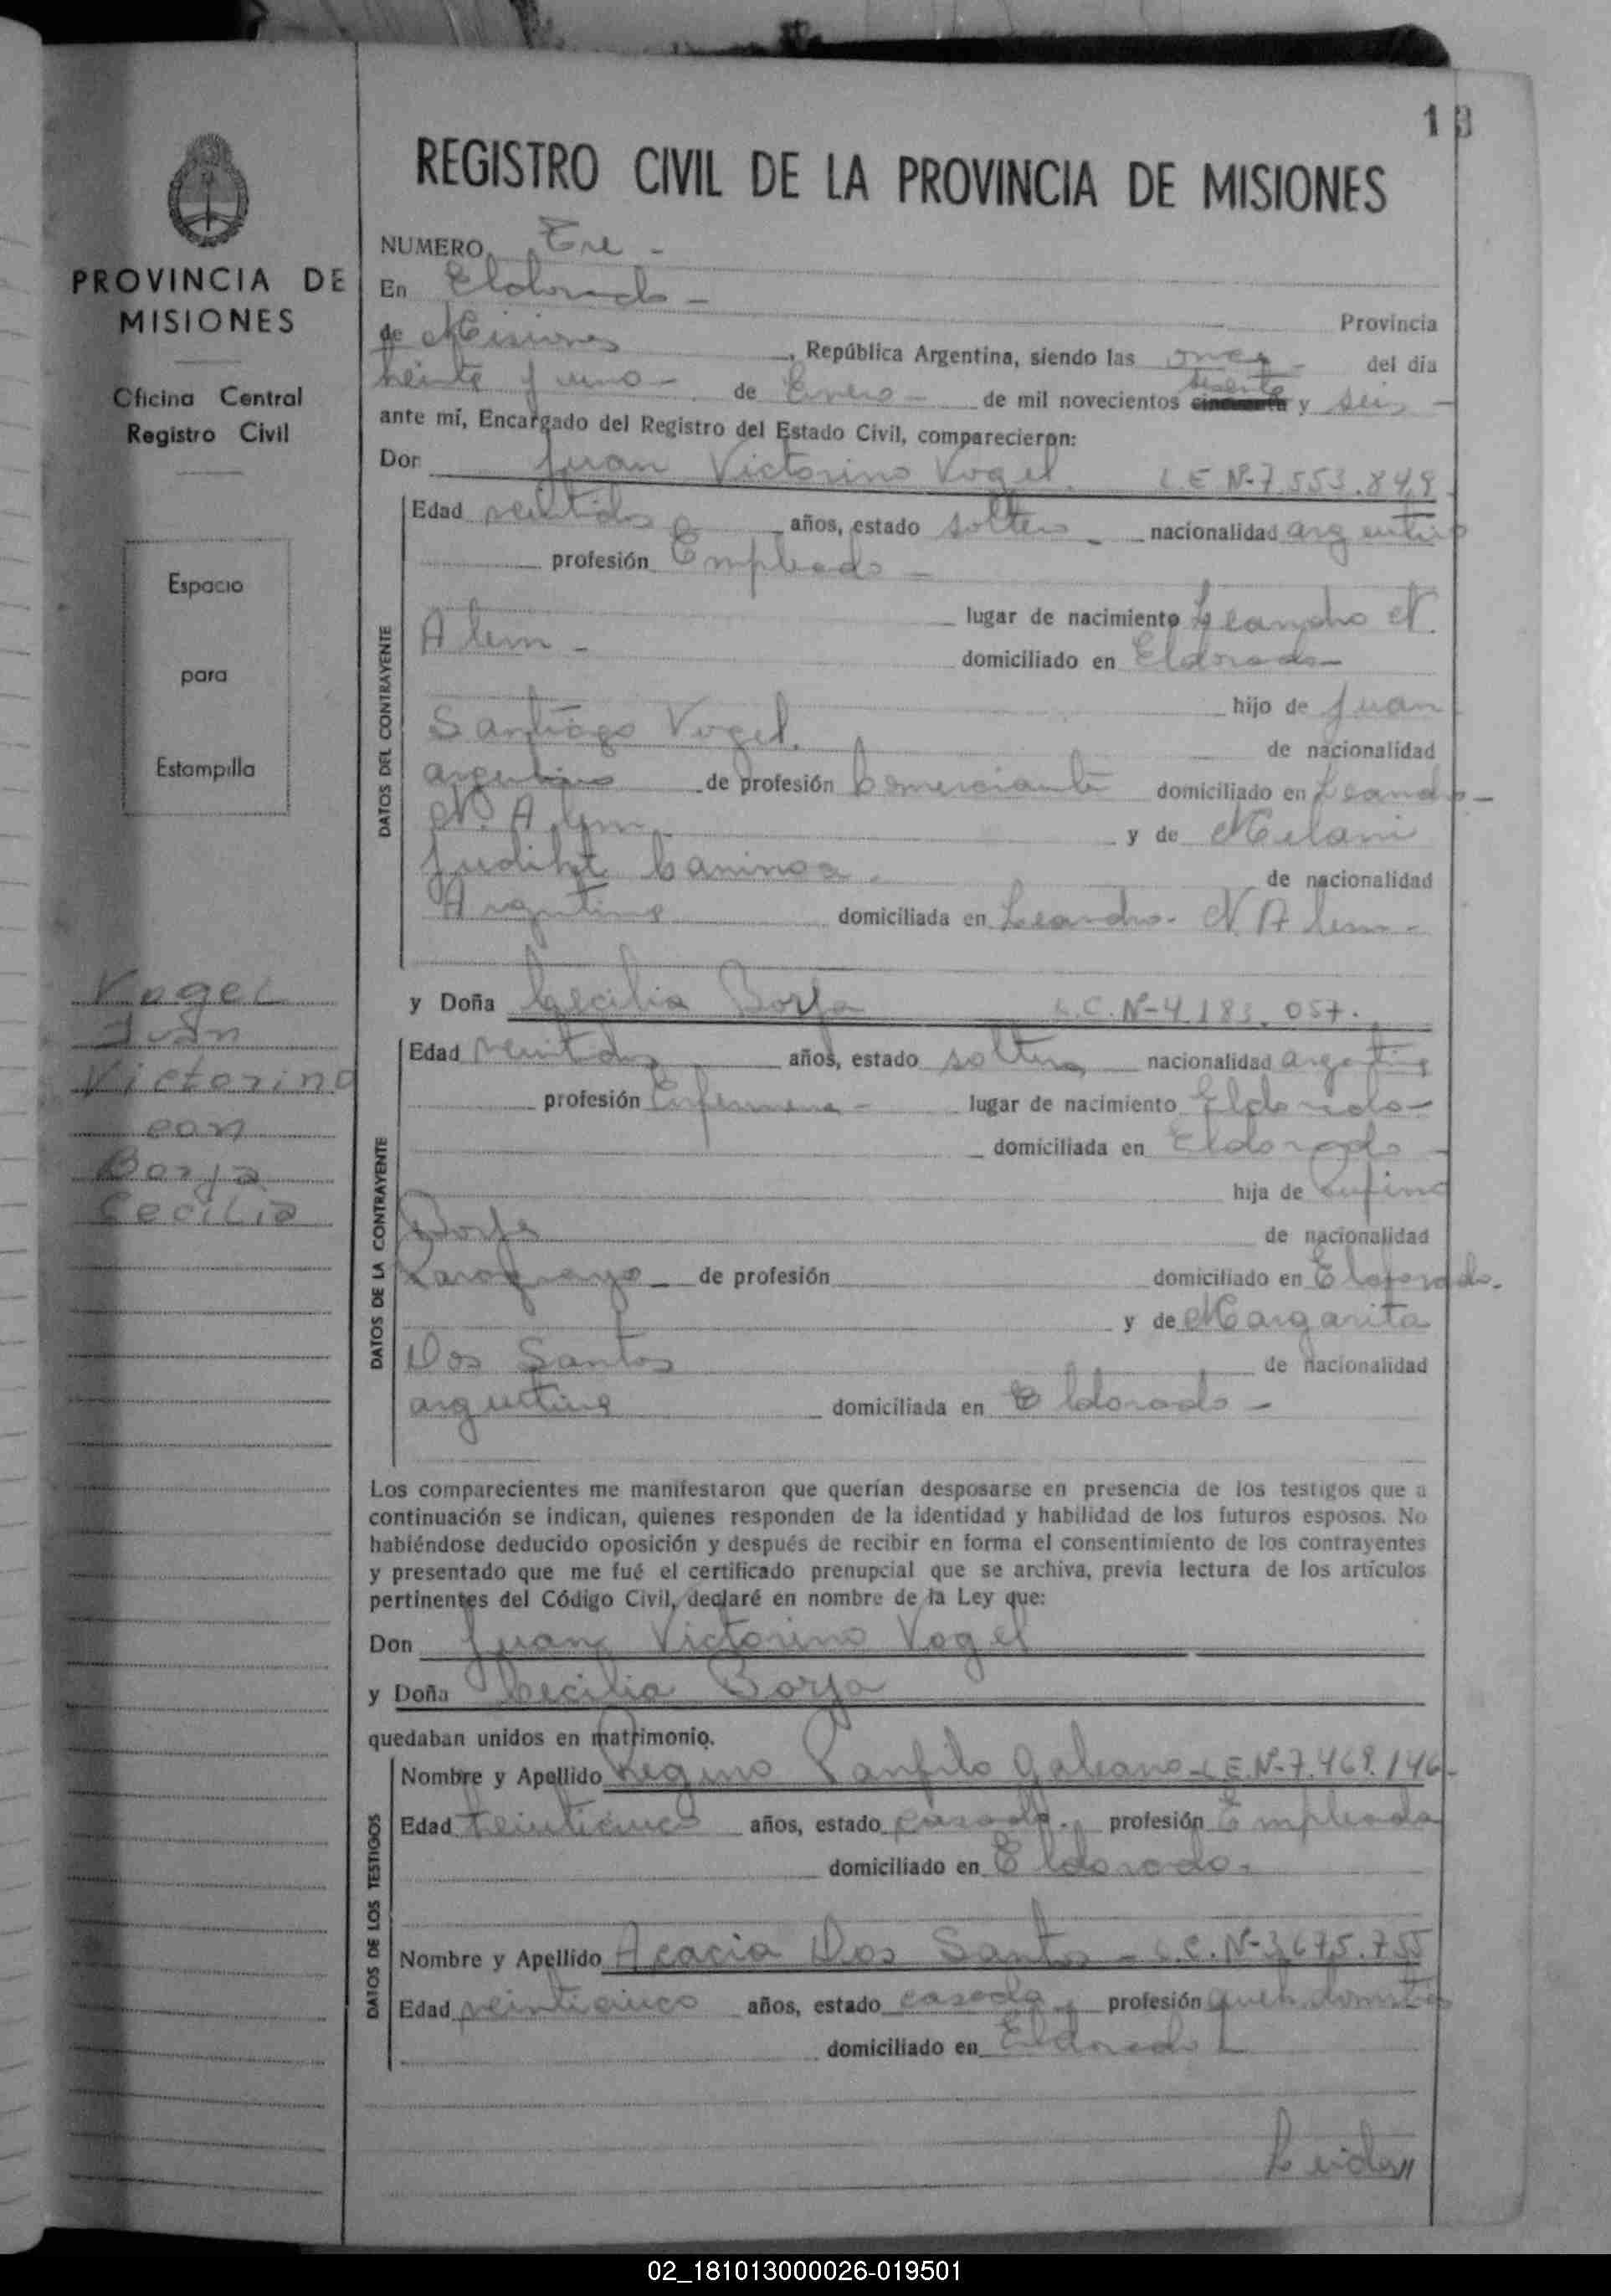 13
REGISTRO CIVIL DE LA PROVINCIA DE MISIONES
PROVINCIA DE
MISIONES
Oficina Central
Registro Civil
Espacio
para
Estampilla
Vogel
Juan
Victorino
con
Borja
Cecilia
NUMERO Tre -
En Eldorado - Provincia
de Misiones , República Argentina, siendo las once - del día
veinte y uno - de Enero - de mil novecientos sesenta y seis -
ante mí, Encargado del Registro del Estado Civil, comparecieron:
Don Juan Victorino Vogel. L E Nº 7.553.849
DATOS DEL CONTRAYENTE
Edad veintidos años, estado soltero - nacionalidad argentino
profesión Empleado -
lugar de nacimiento Leandro N.
Alem - domiciliado en Eldorado -
hijo de Juan
Santiago Vogel. de nacionalidad
argentino de profesión Comerciante domiciliado en Leandro -
N. Alem y de Melani
de nacionalidad
Argentina domiciliada en Leandro - N. Alem -
y Doña Cecilia Borja L.C. Nº 4.183.057.
DATOS DE LA CONTRAYENTE
Edad veintidos años, estado soltera nacionalidad argentina
profesión Enfermera - lugar de nacimiento Eldorado -
domiciliada en Eldorado -
hija de Rufino
Borja de nacionalidad
Paraguayo - de profesión domiciliado en Eldorado -
y de Margarita
Dos Santos de nacionalidad
argentina domiciliada en Eldorado -
Los comparecientes me manifestaron que querían desposarse en presencia de los testigos que a
continuación se indican, quienes responden de la identidad y habilidad de los futuros esposos. No
habiéndose deducido oposición y después de recibir en forma el consentimiento de los contrayentes
y presentado que me fué el certificado prenupcial que se archiva, previa lectura de los artículos
pertinentes del Código Civil, declaré en nombre de la Ley que:
Don Juan Victorino Vogel
y Doña Cecilia Borja
quedaban unidos en matrimonio.
DATOS DE LOS TESTIGOS
Nombre y Apellido Regino Panfilo Galeano - L E. Nº 7.469.146 -
Edad veinticinco años, estado casado. profesión Empleado
domiciliado en Eldorado -
Nombre y Apellido Acacia Dos Santos - L.C. Nº 3.675.755
Edad veinticinco años, estado casada profesión
domiciliado en Eldorado
Leida //
02_181013000026-019501